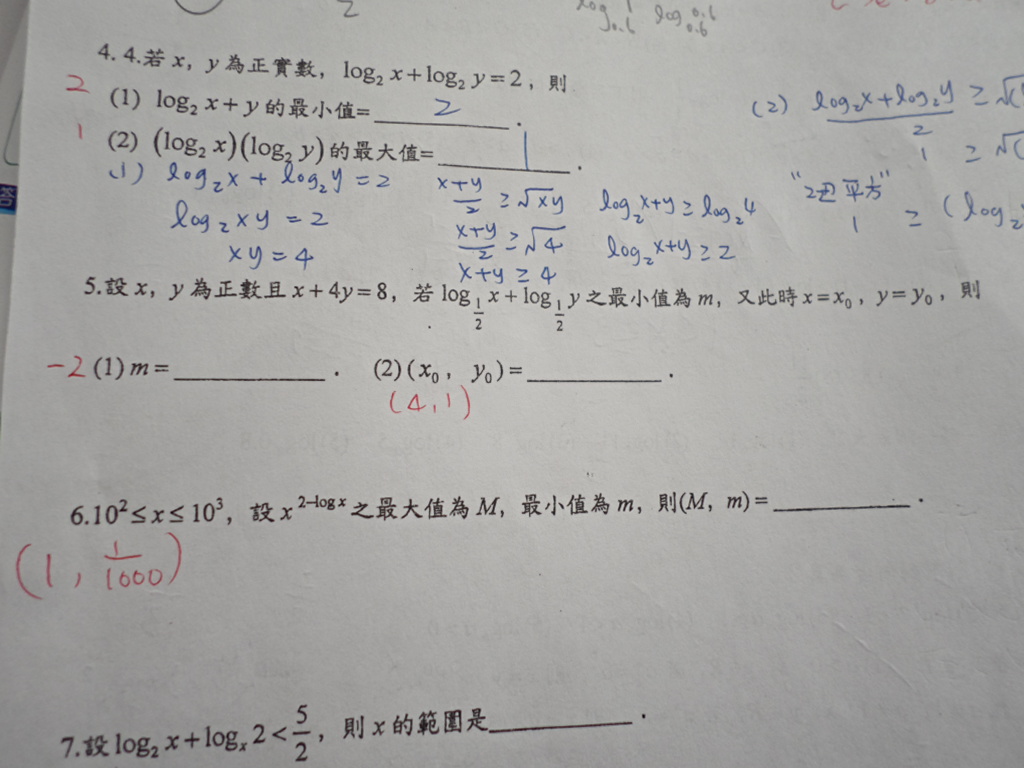 2
log_{0.6} log_{0.6} 0.6
4. 4.若 x，y 為正實數，log₂ x+log₂ y=2，則
2 (1) log₂ x+y 的最小值= 2 .
1 (2) (log₂ x)(log₂ y)的最大值= 1 .
(1) log₂x + log₂y = 2
log₂xy = 2
xy = 4
x+y/2 ≥ √xy
x+y/2 ≥ √4
x+y ≥ 4
log₂x+y ≥ log₂4
log₂x+y ≥ 2
(2) log₂x+log₂y/2 ≥ √(
1 ≥ √(
"2邊平方"
1 ≥ (log₂
5.設 x，y 為正數且 x+4y=8，若 log_{1/2} x+log_{1/2} y 之最小值為 m，又此時 x=x₀，y=y₀，則
-2 (1) m= ______ . (2) (x₀，y₀)= ______ .
(4,1)
6.10²≤x≤10³，設 x^{2-log x} 之最大值為 M，最小值為 m，則(M, m)= ______ .
(1, 1/1000)
7.設 log₂ x+logₓ 2<5/2，則 x 的範圍是______ .
答